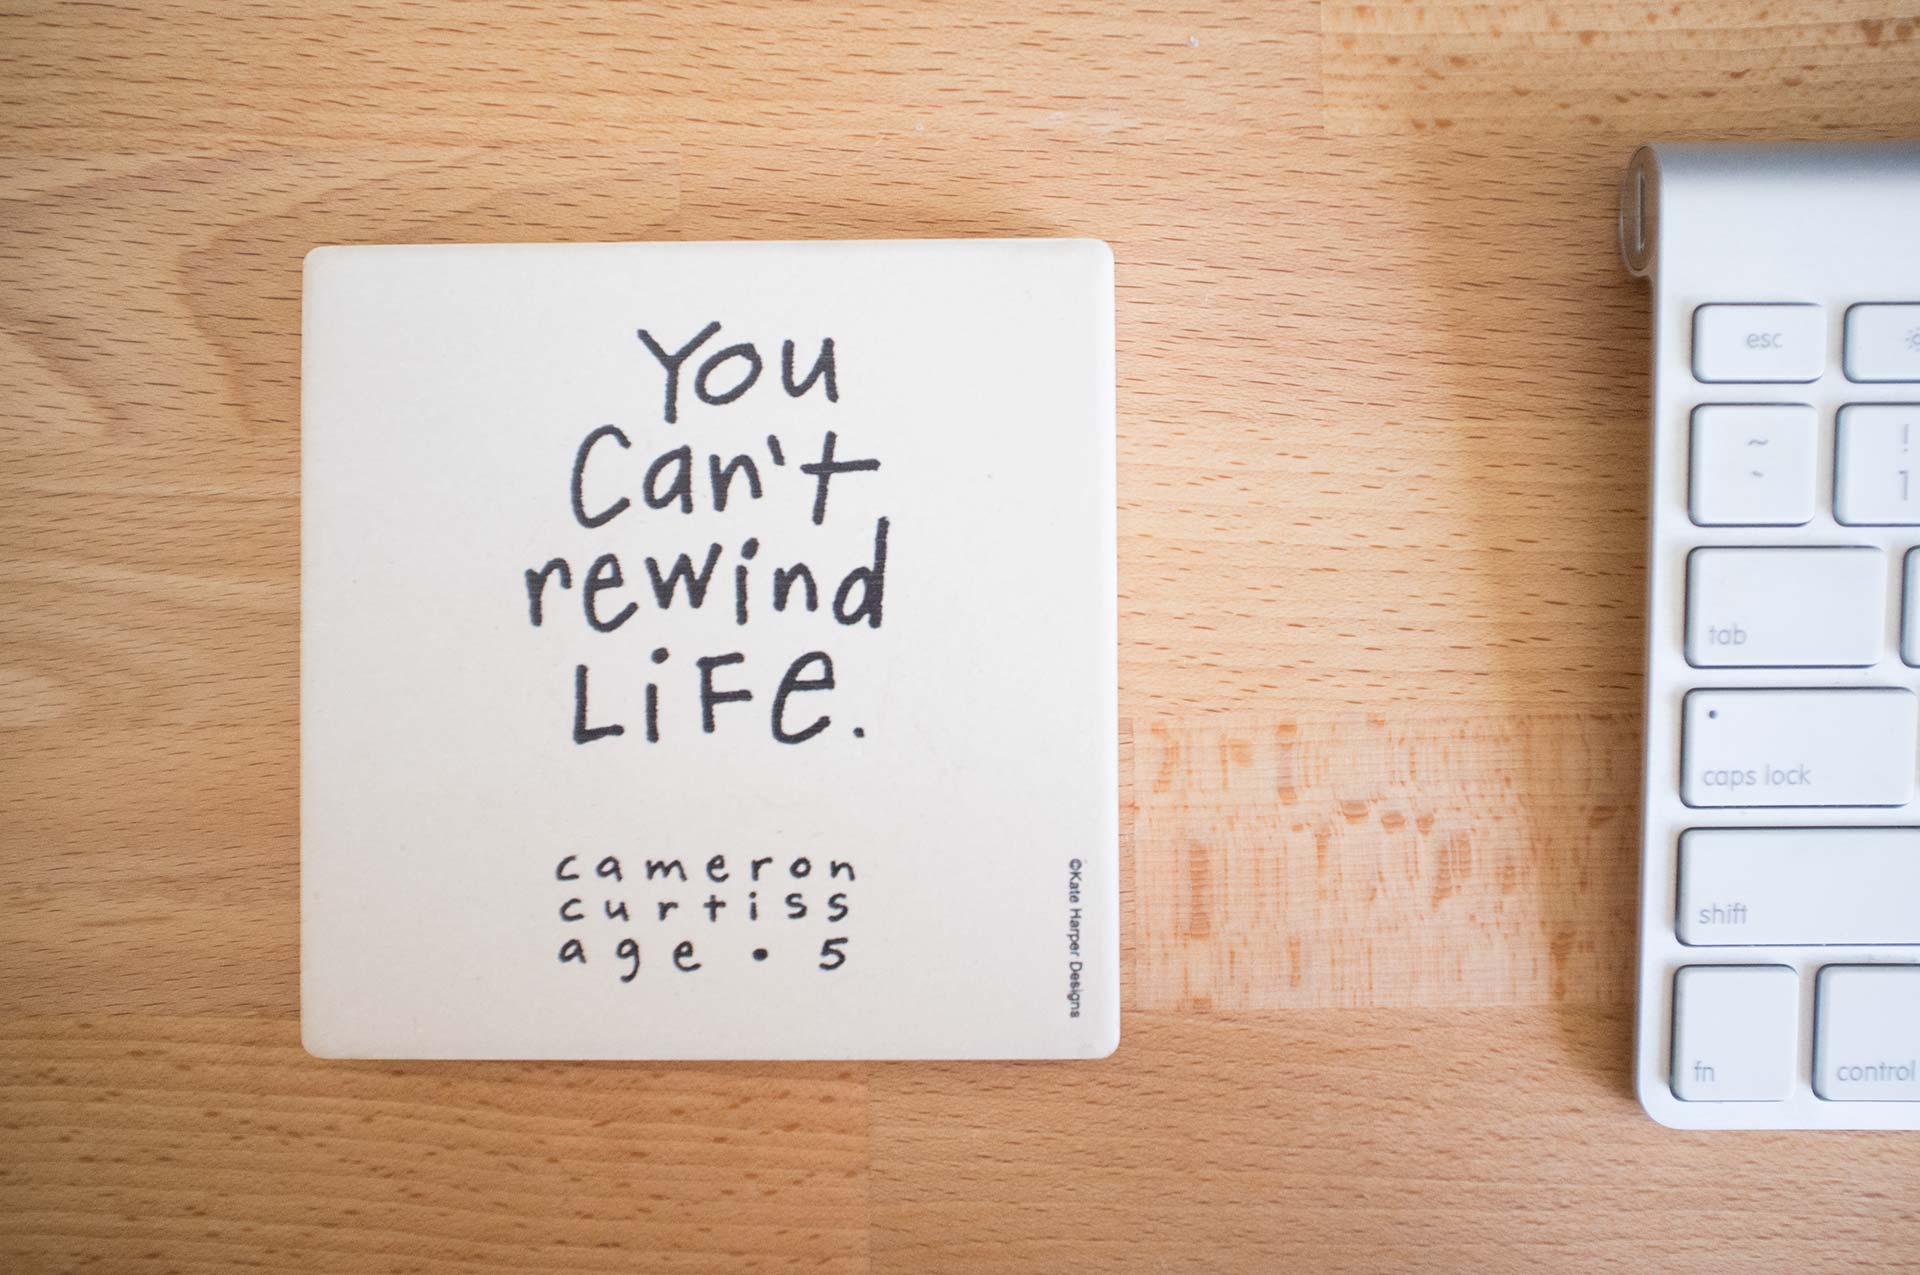 You
Can't
rewind
LiFe.
cameron
curtiss
age • 5
©Kate Harper Designs
esc
~
`
!
1
tab
caps lock
shift
fn
control